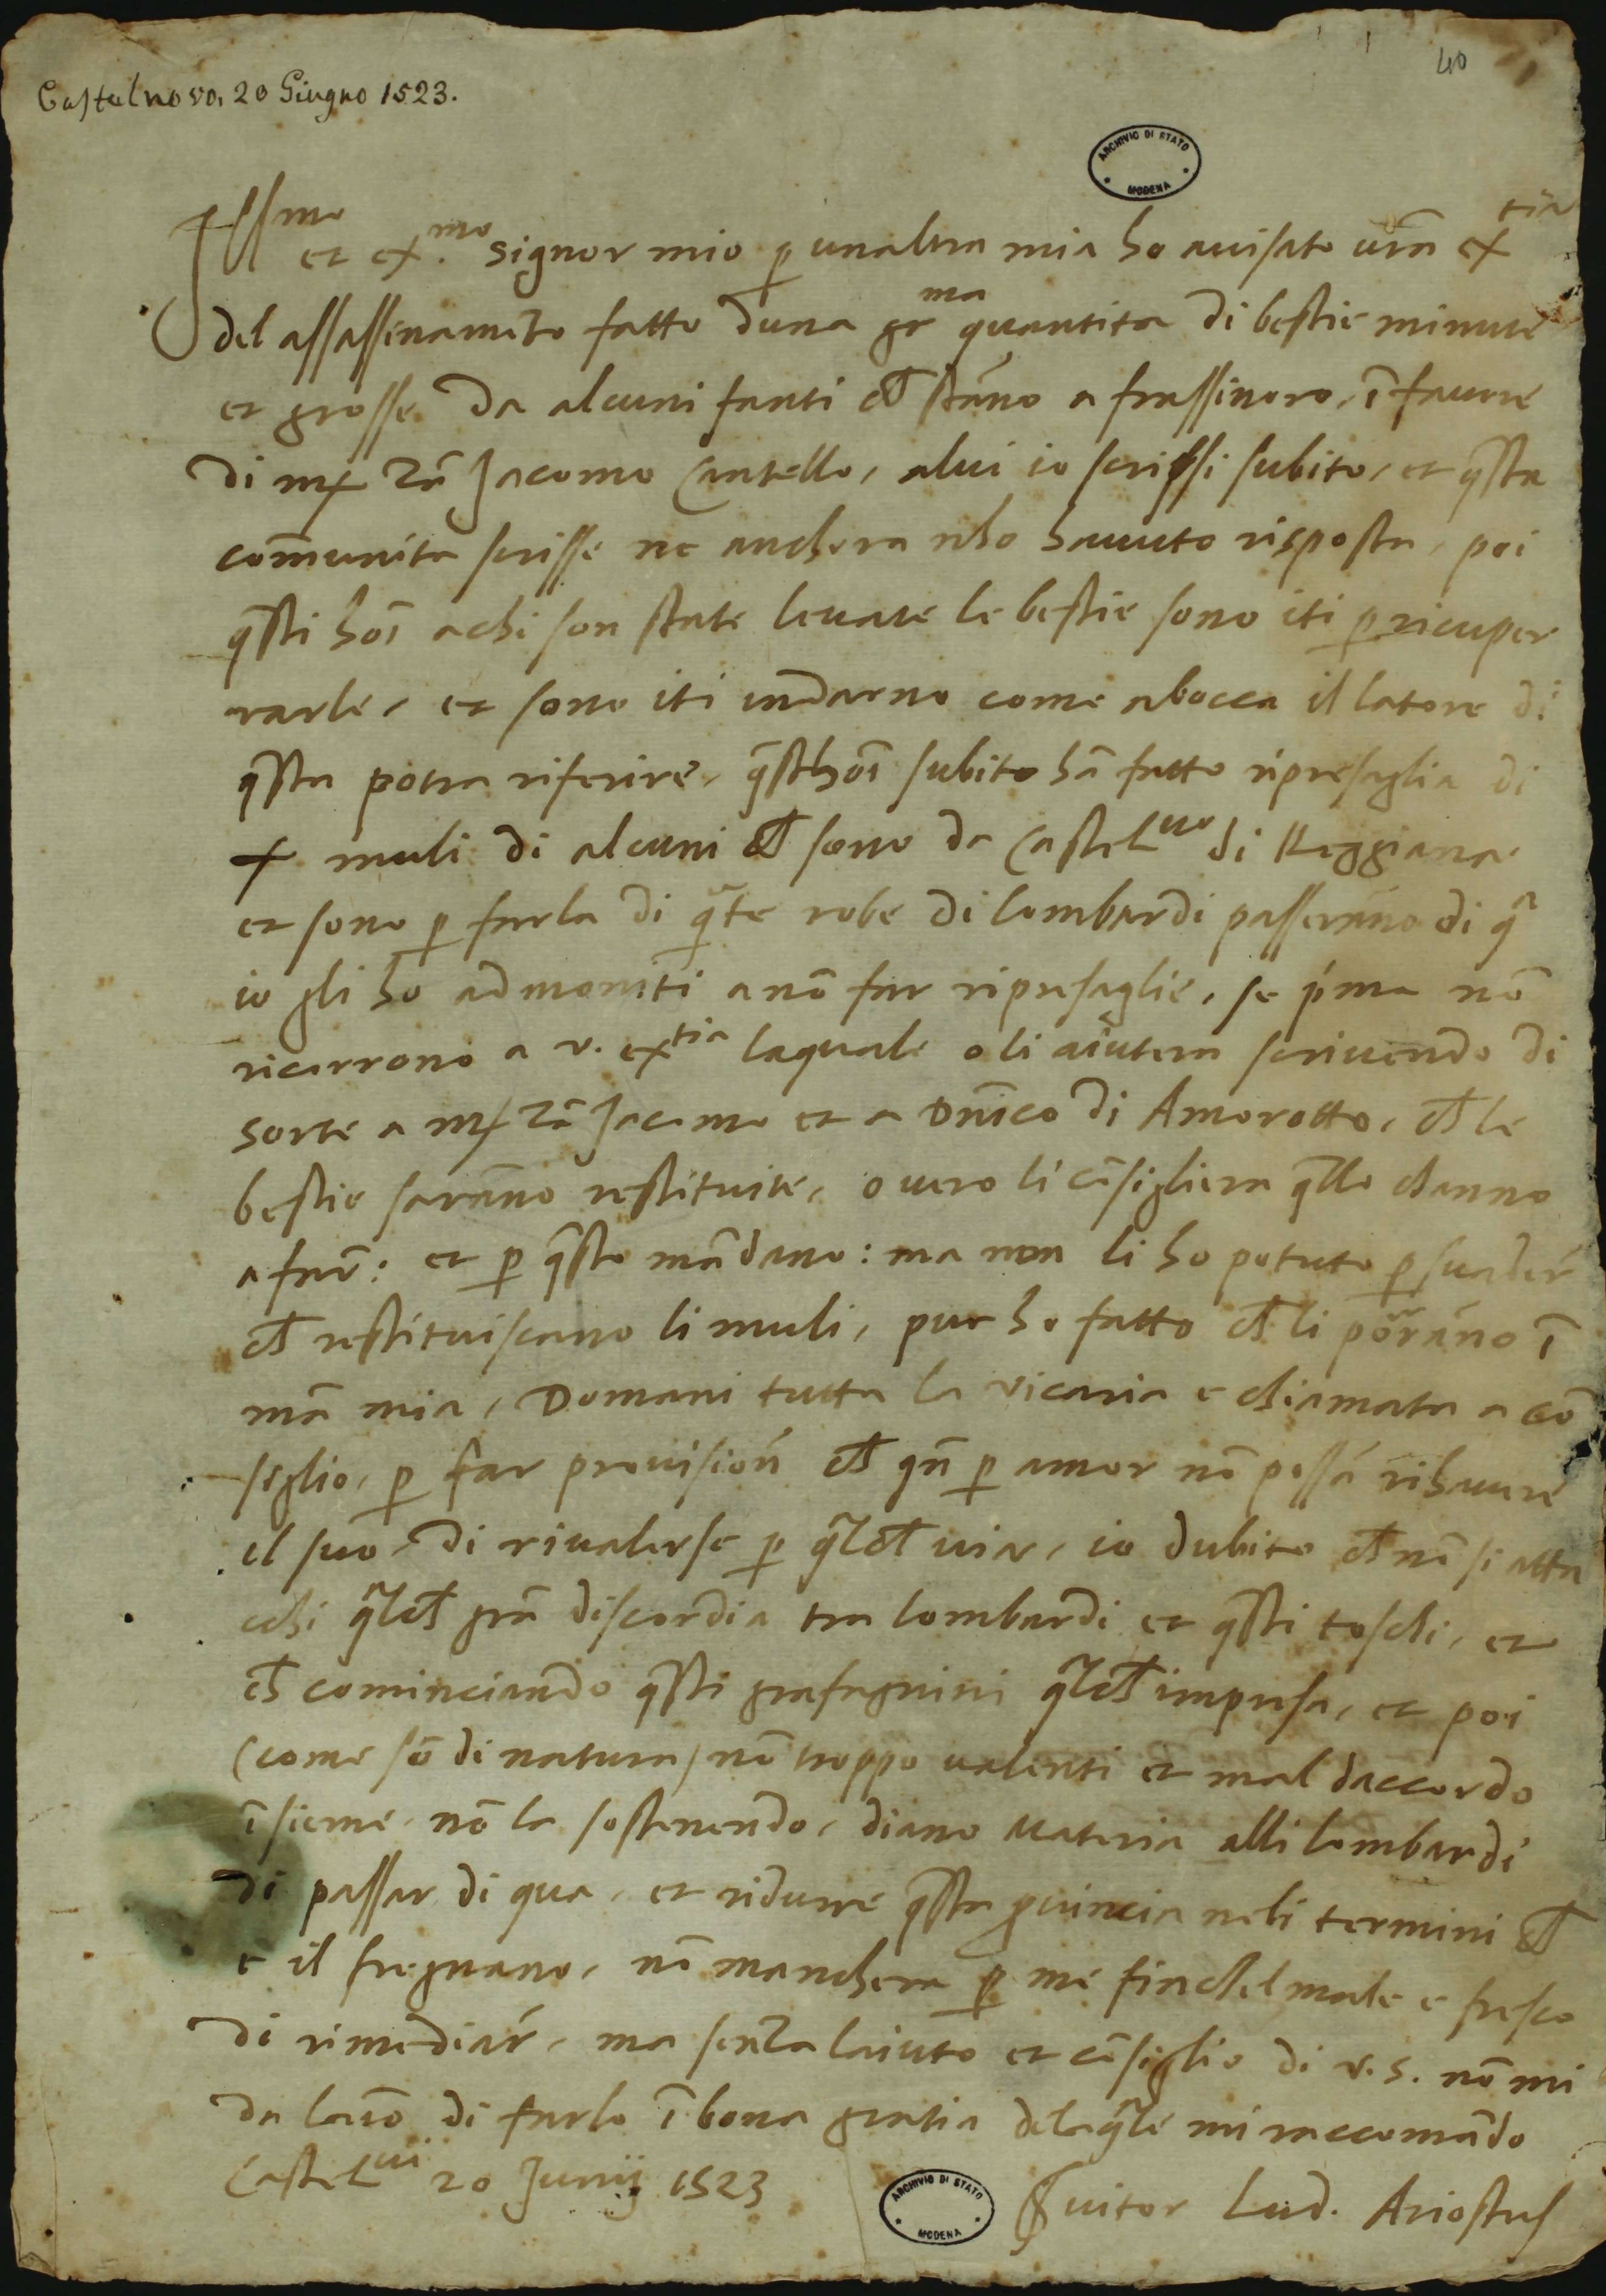 40
Castelnovo, 20 Giugno 1523.
ARCHIVIO DI STATO
MODENA
Ill.mo et ex.mo signor mio p unaltra mia ho auisato vrã extia
del assassenamẽto fatto duna grma quantita di bestie minute
et grosse da alcuni fanti ch̃ stãno a frassinoro, ĩ fauore
di mẏ Zã Jacomo Cantello, alui io scrissi subito, et q̃sta
com̃unita scrisse ne anchora nho hauuto risposta, poi
q̃sti hoĩ achi son state leuate le bestie sono iti p ricuper
rarle, et sono iti indarno come abocca il latore di
q̃sta potra riferire, q̃sthoĩ subito hã fatto ripresaglia di
x muli di alcuni ch̃ sono da Castelnuo di Reggiana
et sono p farla di q̃te robe di lombardi passerãno di q̃
io gli ho admoniti a nõ far ripresaglie, se p̃ma nõ
ricorrono a v. extia laquale o li aiutera scriuendo di
sorte a mẏ Zã Jacomo et a Dñico di Amorotto, ch̃ le
bestie sarãno restituite, o uero li cõsigliera q̃llo channo
a far̃: et p q̃sto mãdano: ma non li ho potuto p suader̃
ch̃ restituiscano li muli, pur ho fatto ch̃ li porrãno ĩ
mã mia, Domani tutta la vicaria e chiamata a cõ
siglio, p far prouisioñ ch̃ qñ p amor nõ possã rihauere
il suo, di riualerse p q̃lch̃ uia, io dubito ch̃ nõ si atta
chi q̃lch̃ grã discordia tra lombardi et q̃sti toschi, et
ch̃ cominciando q̃sti grafagnini q̃lch̃ impresa, et poi
(come sõ di natura) nõ troppo ualenti et mal daccordo
ĩsieme, nõ la sostenendo, diano materia alli lombardi
di passar di qua, et ridurre q̃sta puincia neli termini ch̃
e il fregnano, nõ manchera p me finchel male e fresco
di rimediar̃, ma senza laiuto et cõsiglio di v. s. nõ mi
da laĩo di farlo ĩ bona gratia delaq̃le mi raccomãdo
Castelui 20 Junij 1523
Suitor Lud. Ariostus
ARCHIVIO DI STATO
MODENA